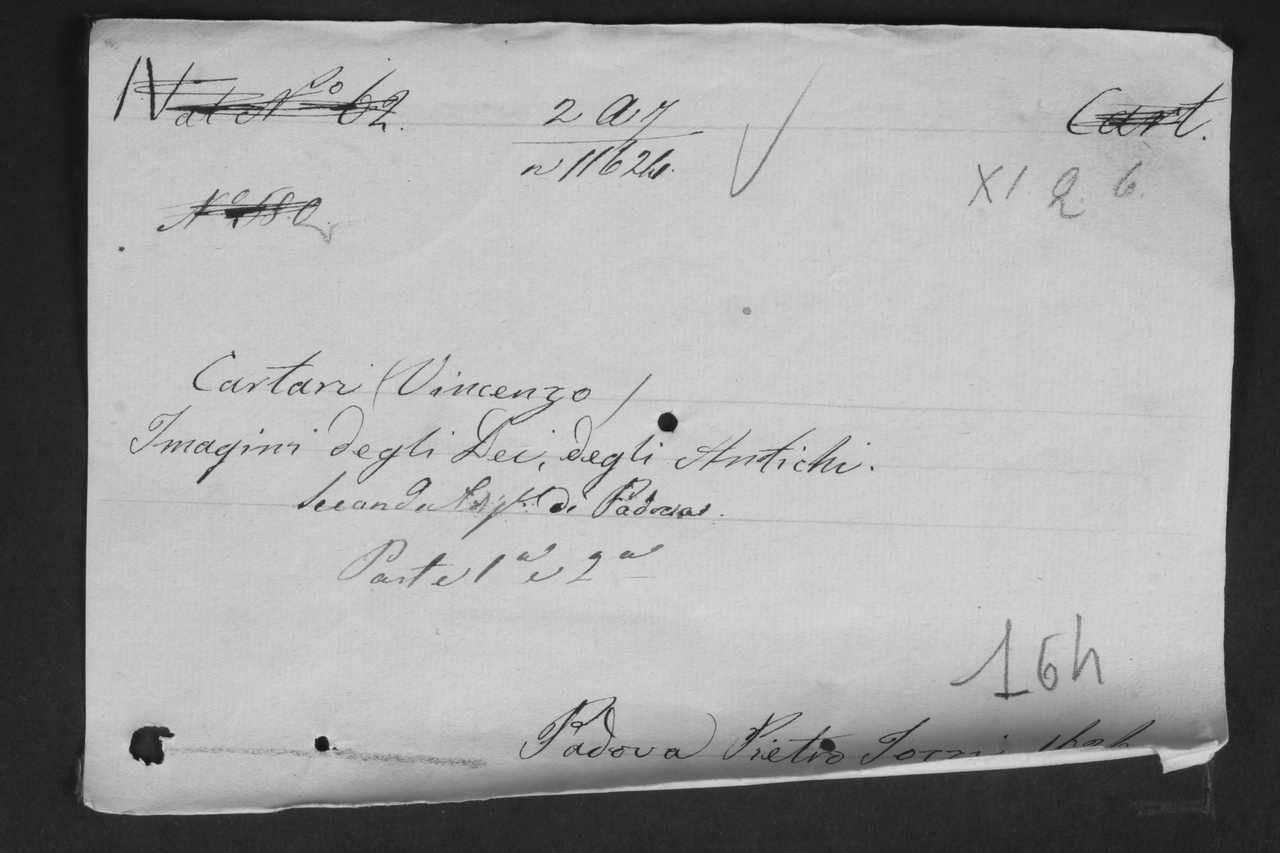 Nat N.º 62.
2 a 7
Cart.
n 11624.
XI. 2. 6.
Nº 680.
Cartari (Vincenzo)
Imagini degli Dei, degli Antichi.
Seconda di Padova.
Parte 1ª e 2ª
164
Padova Pietro Tozzi 1626